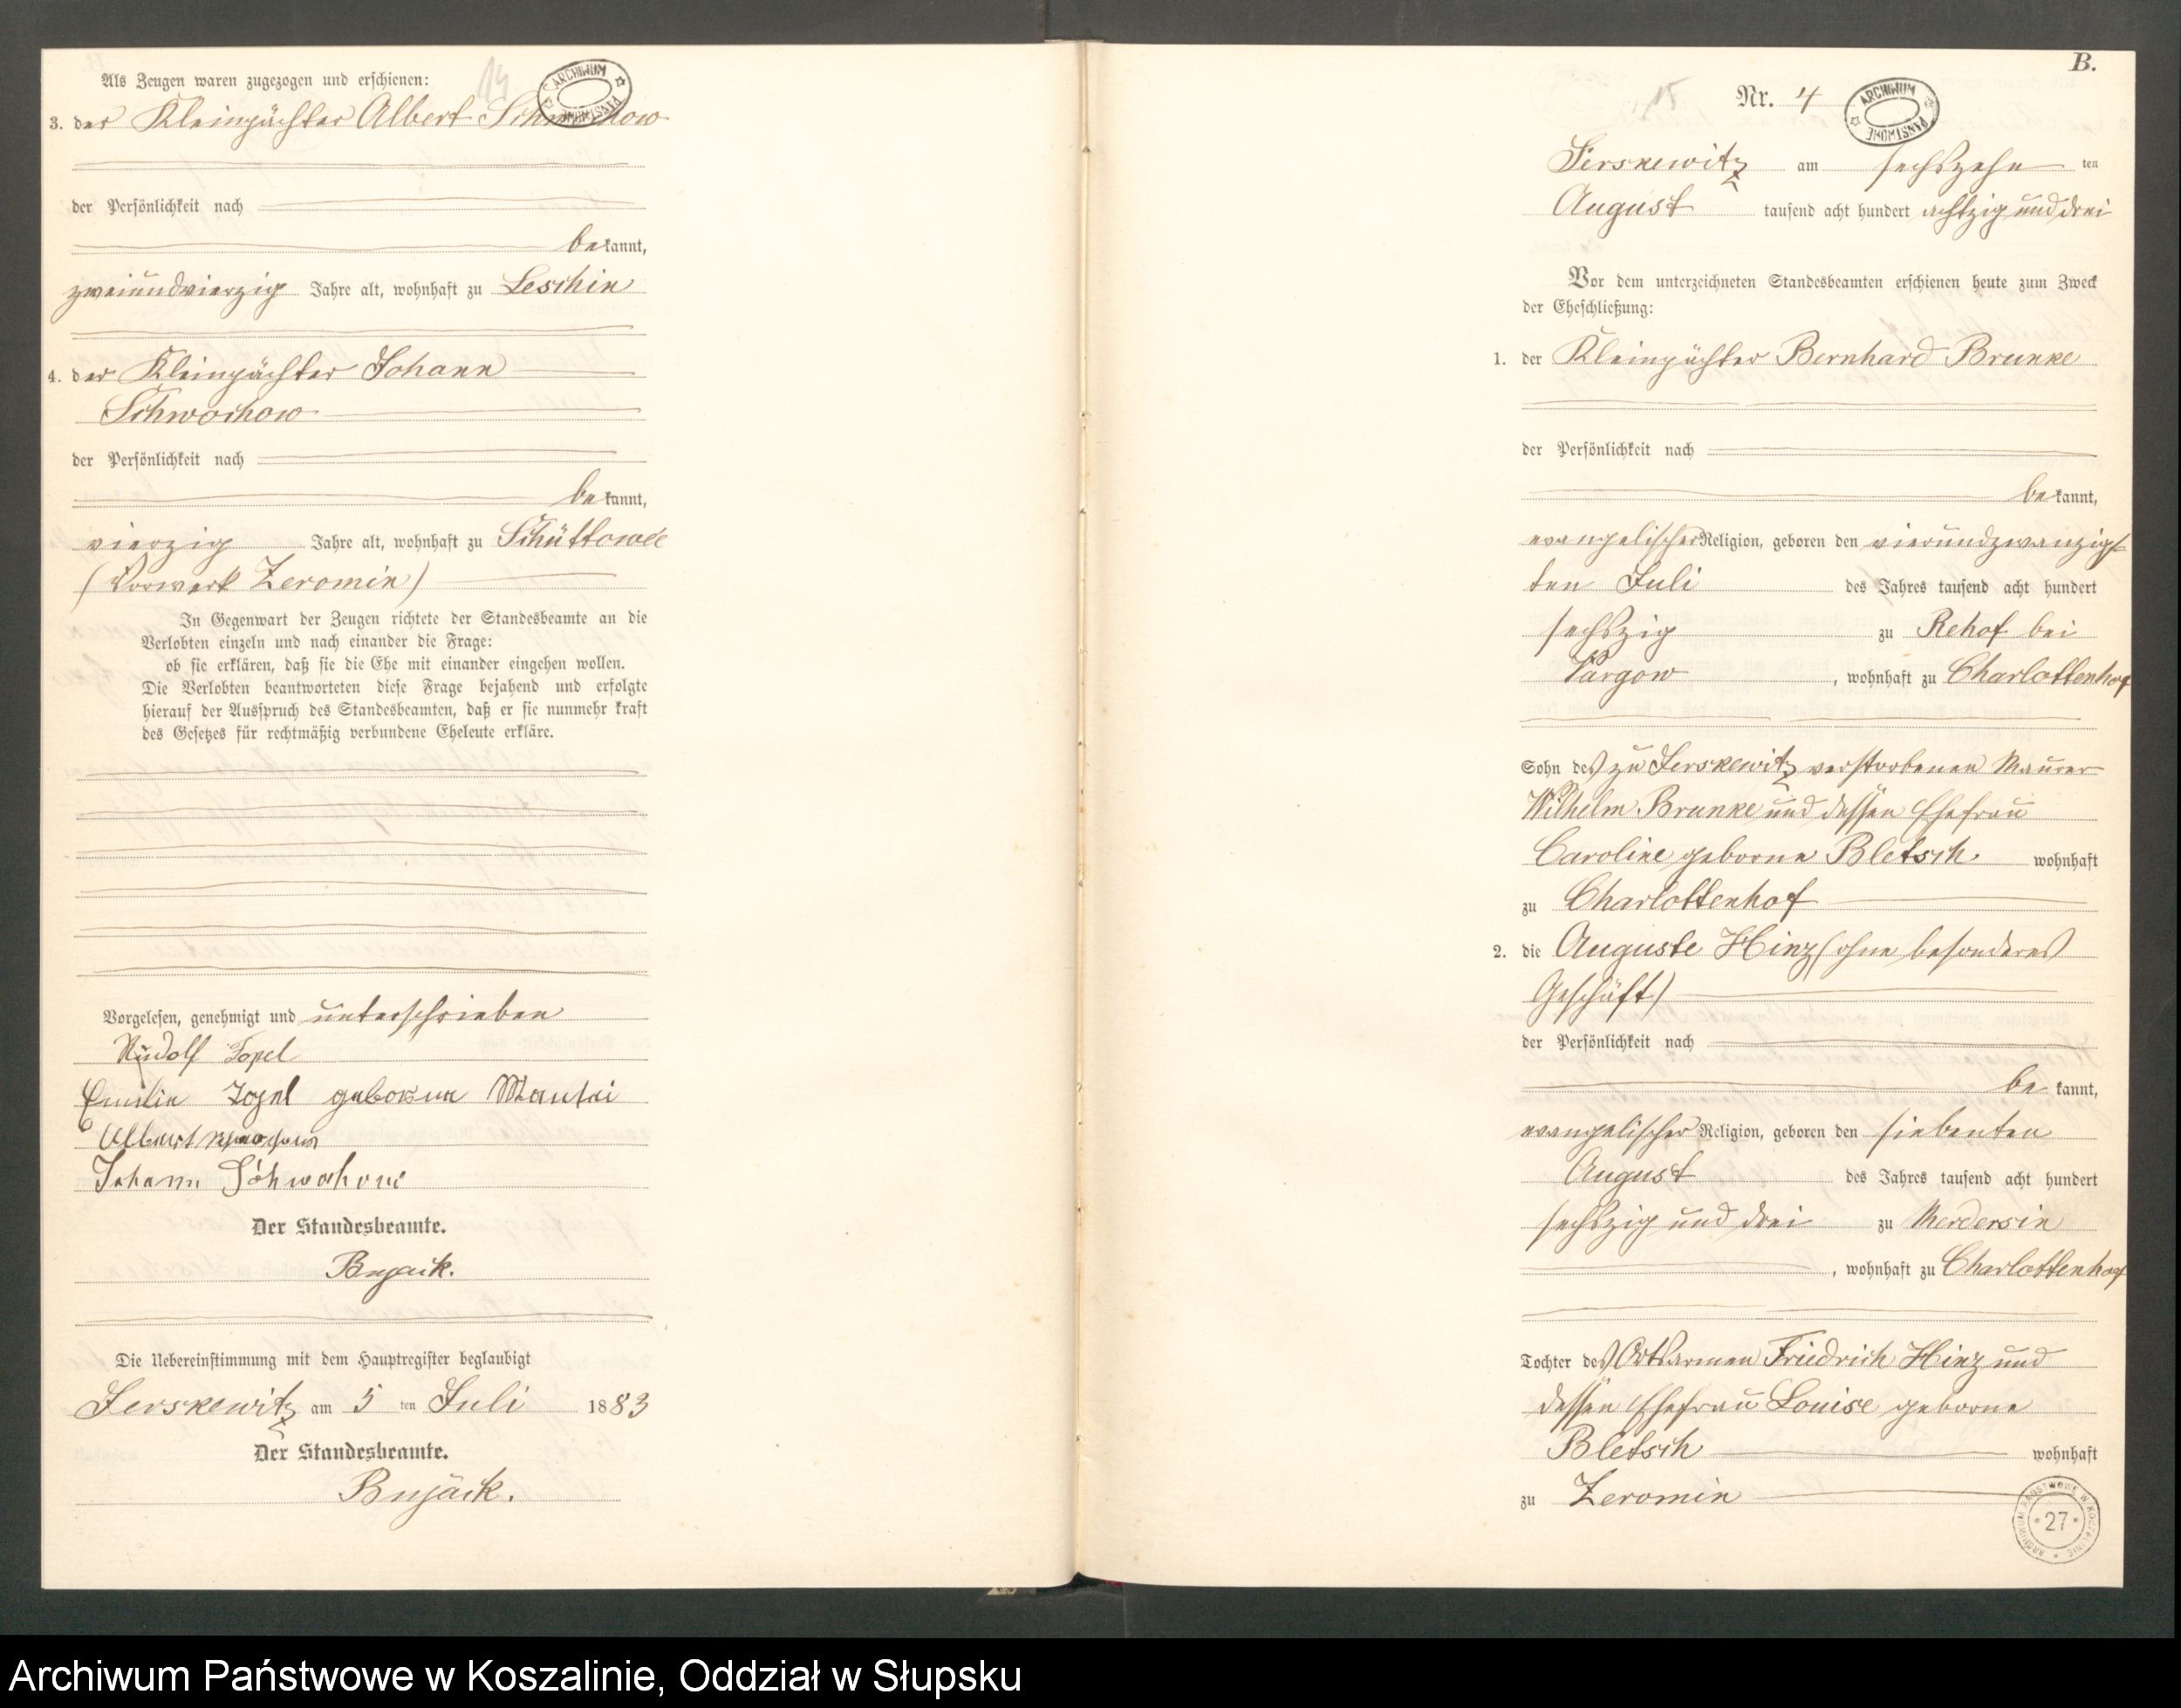 Als Zeugen waren zugezogen und erschienen:
14
ARCHIWUM PAŃSTWOWE
3. der Kleinpächter Albert
der Persönlichkeit nach
bekannt,
zweiundvierzig Jahre alt, wohnhaft zu Leschin
4. der Kleinpächter Johann
Schwochow
der Persönlichkeit nach
bekannt,
vierzig Jahre alt, wohnhaft zu
(Vorwerk Zeromin)
In Gegenwart der Zeugen richtete der Standesbeamte an die
Verlobten einzeln und nach einander die Frage:
ob sie erklären, daß sie die Ehe mit einander eingehen wollen.
Die Verlobten beantworteten diese Frage bejahend und erfolgte
hierauf der Ausspruch des Standesbeamten, daß er sie nunmehr kraft
des Gesetzes für rechtmäßig verbundene Eheleute erkläre.
Vorgelesen, genehmigt und unterschrieben
Rudolf Topel
Emilie Topel geborne Mantei
Albert
Johann Schwochow
Der Standesbeamte.
Bujack.
Die Uebereinstimmung mit dem Hauptregister beglaubigt
Jerskewitz am 5 ten Juli 1883
Der Standesbeamte.
Bujack.
B.
15
Nr. 4
ARCHIWUM PAŃSTWOWE
Jerskewitz am sechszehn ten
August tausend acht hundert achtzig und drei
Vor dem unterzeichneten Standesbeamten erschienen heute zum Zweck
der Eheschließung:
1. der Kleinpächter Bernhard Brunke
der Persönlichkeit nach
bekannt,
evangelischer Religion, geboren den vierundzwanzigs-
ten Juli des Jahres tausend acht hundert
sechszig zu Rehof bei
Vargow, wohnhaft zu Charlottenhof
Sohn des zu Jerskewitz verstorbenen Maurer
Wilhelm Brunke und dessen Ehefrau
Caroline geborne Bletsch wohnhaft
zu Charlottenhof
2. die Auguste Hinz (ohne besonderes
Geschäft)
der Persönlichkeit nach
bekannt,
evangelischer Religion, geboren den siebenten
August des Jahres tausend acht hundert
sechszig und drei zu Merdersin
, wohnhaft zu Charlottenhof
Tochter des Ortsarmen Friedrich Hinz und
dessen Ehefrau Louise geborne
Bletsch wohnhaft
zu Zeromin
ARCHIWUM PAŃSTWOWE W KOSZALINIE * 27 *
Archiwum Państwowe w Koszalinie, Oddział w Słupsku